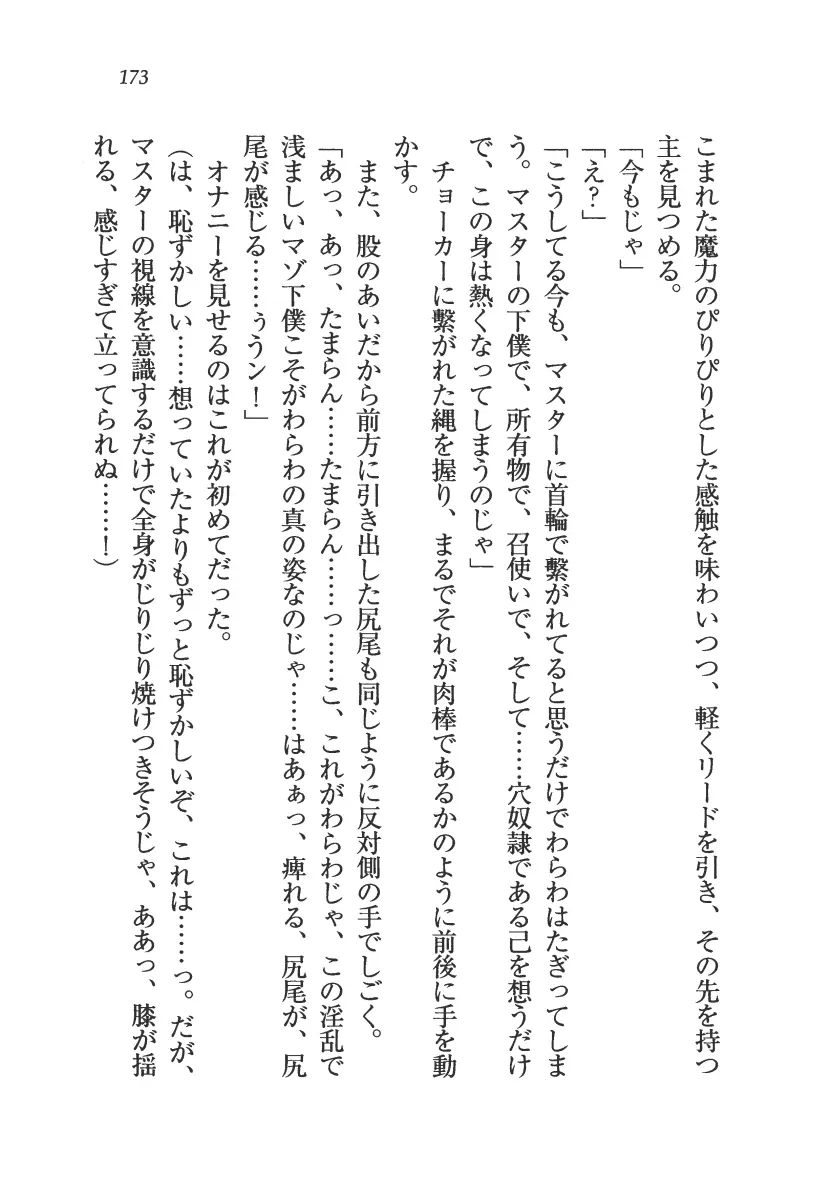 173
こまれた魔力のぴりぴりとした感触を味わいつつ、軽くリードを引き、その先を持つ
主を見つめる。
「今もじゃ」
「え？」
「こうしてる今も、マスターに首輪で繋がれてると思うだけでわらわはたぎってしま
う。マスターの下僕で、所有物で、召使いで、そして……穴奴隷である己を想うだけ
で、この身は熱くなってしまうのじゃ」
　チョーカーに繫がれた縄を握り、まるでそれが肉棒であるかのように前後に手を動
かす。
　また、股のあいだから前方に引き出した尻尾も同じように反対側の手でしごく。
「あっ、あっ、たまらん……たまらん……っ……こ、これがわらわじゃ、この淫乱で
浅ましいマゾ下僕こそがわらわの真の姿なのじゃ……はあぁっ、痺れる、尻尾が、尻
尾が感じる……ぅうン！」
　オナニーを見せるのはこれが初めてだった。
（は、恥ずかしい……想っていたよりもずっと恥ずかしいぞ、これは……っ。だが、
マスターの視線を意識するだけで全身がじりじり焼けつきそうじゃ、ああっ、膝が揺
れる、感じすぎて立ってられぬ……！）